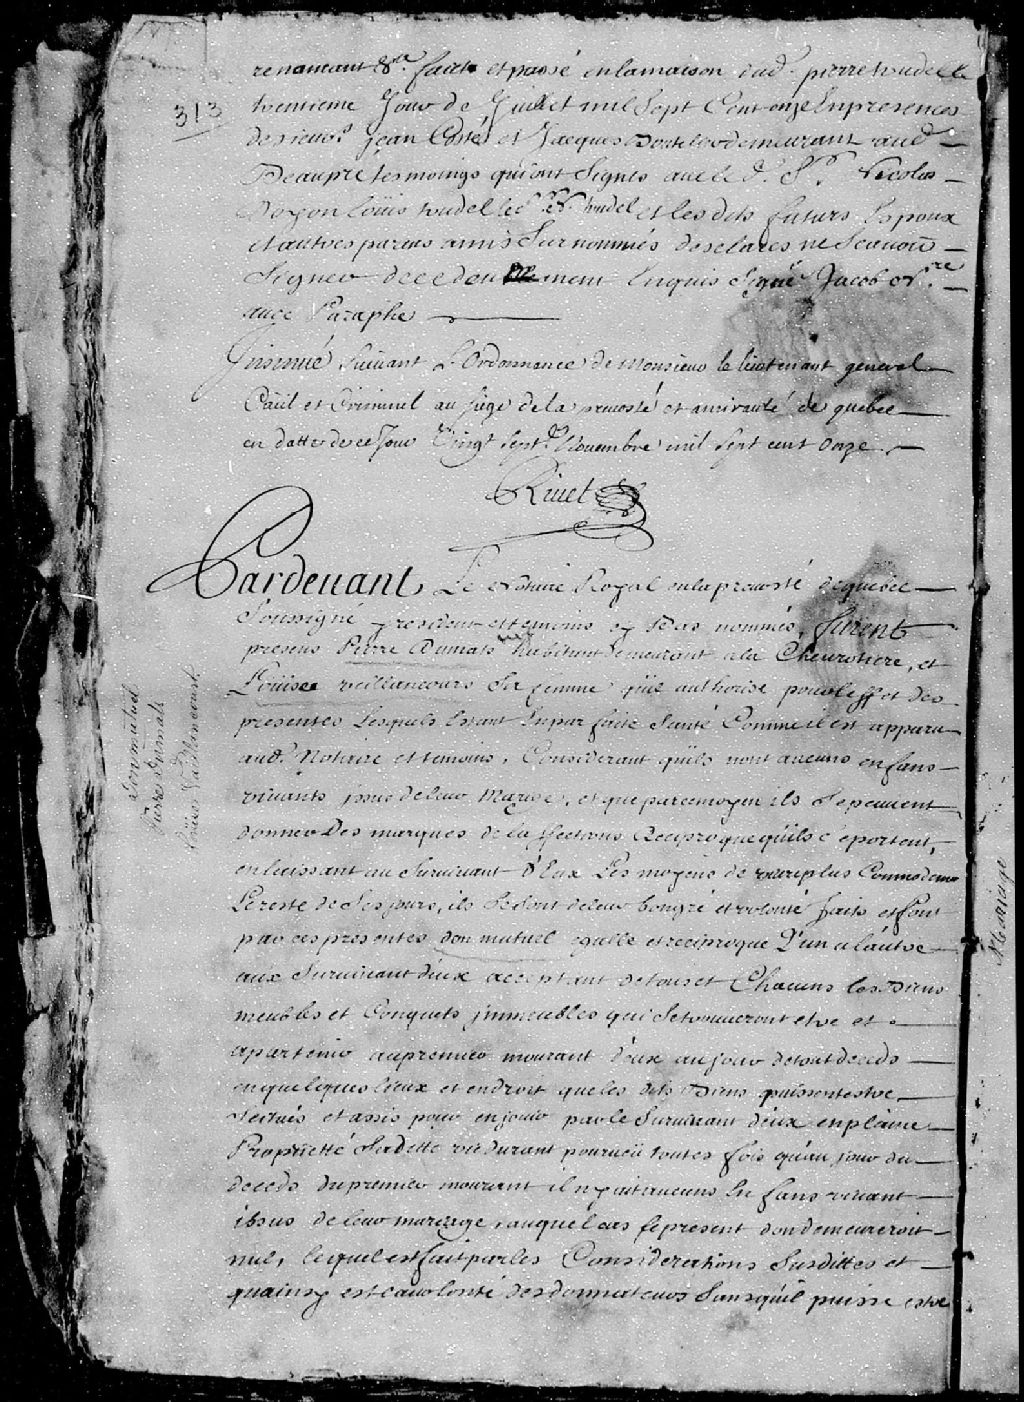 313
renoncant &a. faict et passé en la maison dud. pierre trudelle
trentieme Jour de Juillet mil Sept Cent onze En presences
de sieurs jean Costé et Jacques demeurant aud.
Beaupré tesmoings qui ont Signés avec le d. Sr. Nicolas
Doyon Loüis trudelle et les dits futurs Espoux
et autres parens amis Surnommés declarés ne Scavoir
Signer de ce deument Enquis Signé Jacob Nre
avec Paraphe
Insinué Suivant L'Ordonnance de Monsieur le lieutenant general
Civil et Criminel au siege de la prevosté et amirauté de quebec
en datte de ce Jour Vingt Sept Novembre mil Sept cent Onze.
Rivet
Donmutuel
Pierre Dumais
Louise Vaillancourt
Pardevant Le Notaire Royal en la prevosté de quebec
Soussigné y resident et temoins cy bas nommés, furent
presens Pierre Dumais habitant demeurant a la Chevrotiere, et
Loüise veillancours Sa femme qu'il authorise pour l'eff et des
presentes Lesquels Estant En parfaite Santé Comme il est apparu
aud. Notaire et temoins, Considerant qu'ils nont aucuns enfans
vivants issus de leur Mariage, et que par ce moyen ils Se peuvent
donner Des marques de la ffections Reciproque qu'ils se portent,
en laissant au Survivant d'Eux Les moyens de vivre plus Commodem
Le reste de Ses jours, ils Se sont de leur bon gré et volonté faits et font
par ces presentes don mutuel egalle et reciproque L'un a l'autre
aux Survivant d'eux acceptant de tous et Chacuns les Biens
meubles et Conquets immeubles qui Se trouveront estre et
apartenir au premier mourant d'eux au jour de son deceds
en quelques lieux et endroit que les dits Biens puissent estre
Scitués et assis pour en jouir par le Survivant d'eux en plaine
Proprietté Sa dette vie durant pourveü toutes fois qu'au jour du
deceds du premier mourant il n'y ait aucuns En fans vivant
issus de leur mariage, auquel cas le present don demeureroit
nul, lequel est fait par les Considerations Susdittes et
qu'ainsy est la volonté des donnateurs Sans qu'il puisse estre
Mariage